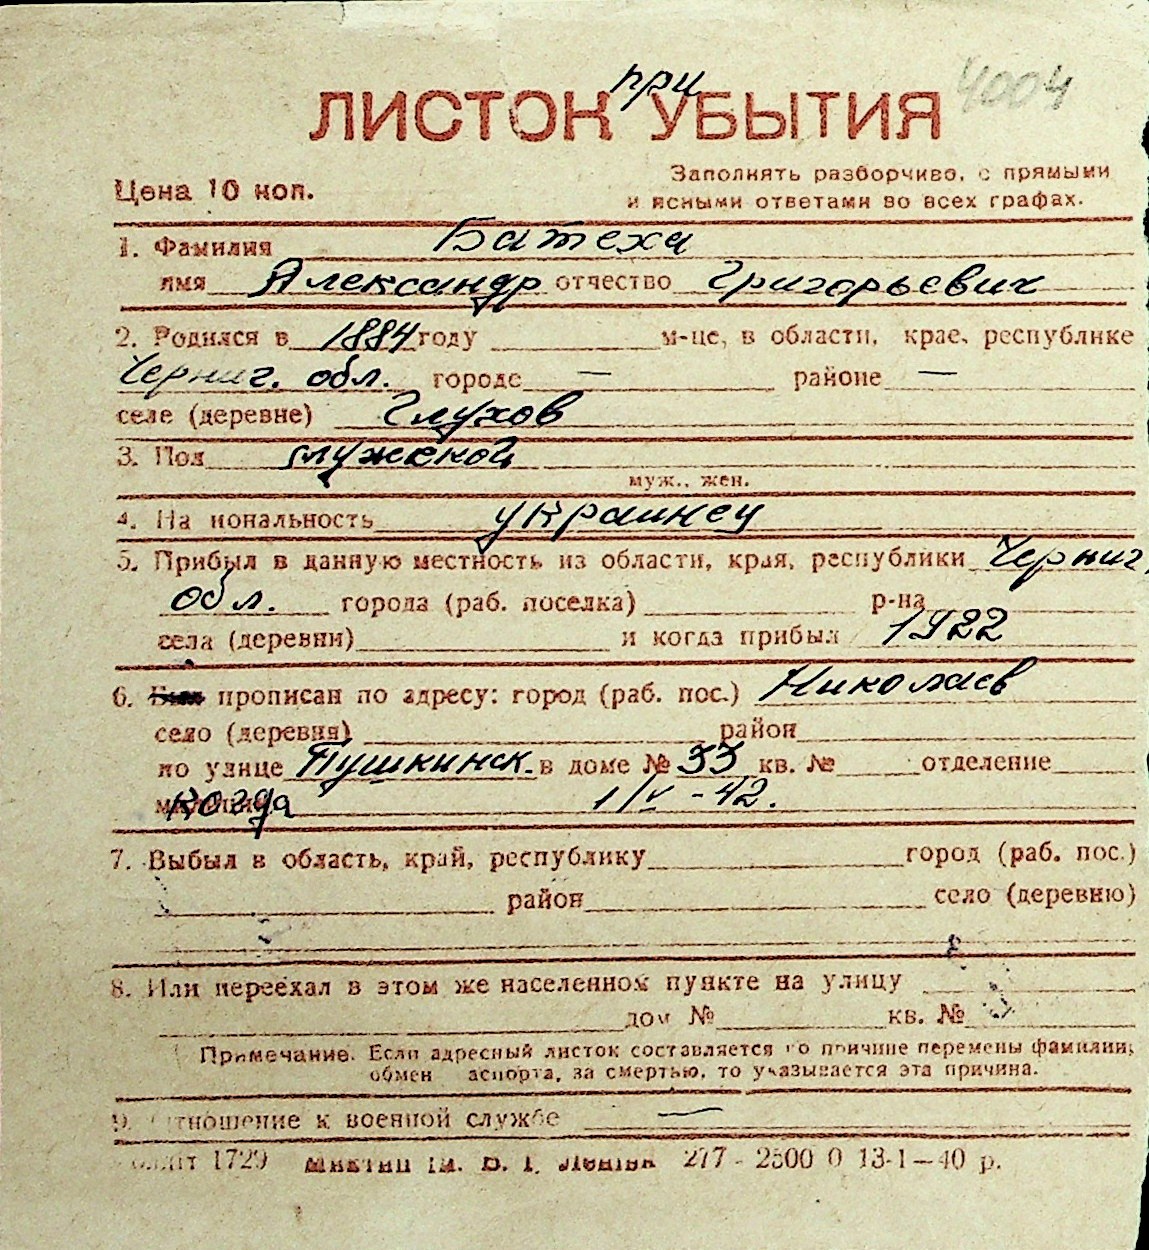 при 4004
ЛИСТОК УБЫТИЯ
Цена 10 коп.
Заполнять разборчиво, с прямыми
и ясными ответами во всех графах.
1. Фамилия Батеха
имя Александр отчество Григорьевич
2. Родился в 1884 году м-це, в области, крае, республике
Черниг. обл. городе — районе —
селе (деревне) Глухов
3. Пол мужской
муж., жен.
4. На иональность украинец
5. Прибыл в данную местность из области, края, республики Черниг.
обл. города (раб. поселка) р-на
села (деревни) и когда прибыл 1922
6. прописан по адресу: город (раб. пос.) Николаев
село (деревня) район
по улице Пушкинск. в доме № 33 кв. № отделение
когда 1/V - 42.
7. Выбыл в область, край, республику город (раб. пос.)
район село (деревню)
8. Или переехал в этом же населенном пункте на улицу
дом № кв. №
Примечание. Если адресный листок составляется по причине перемены фамилии,
обмен аспорта, за смертью, то указывается эта причина.
9. Отношение к военной службе —
1729 277 - 2500 0 13-1—40 р.